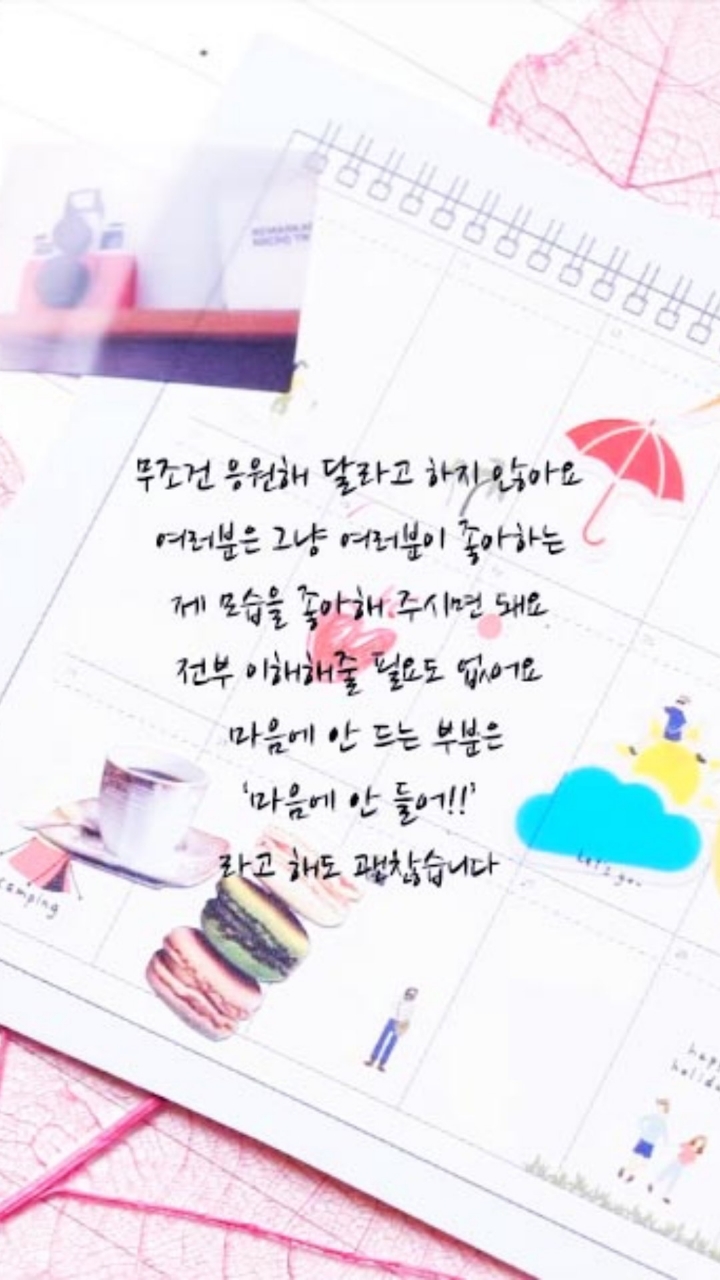 무조건 응원해 달라고 하지 않아요
여러분은 그냥 여러분이 좋아하는
제 모습을 좋아해 주시면 돼요
전부 이해해줄 필요도 없어요
마음에 안 드는 부분은
'마음에 안 들어!!'
라고 해도 괜찮습니다
let's go~
camping